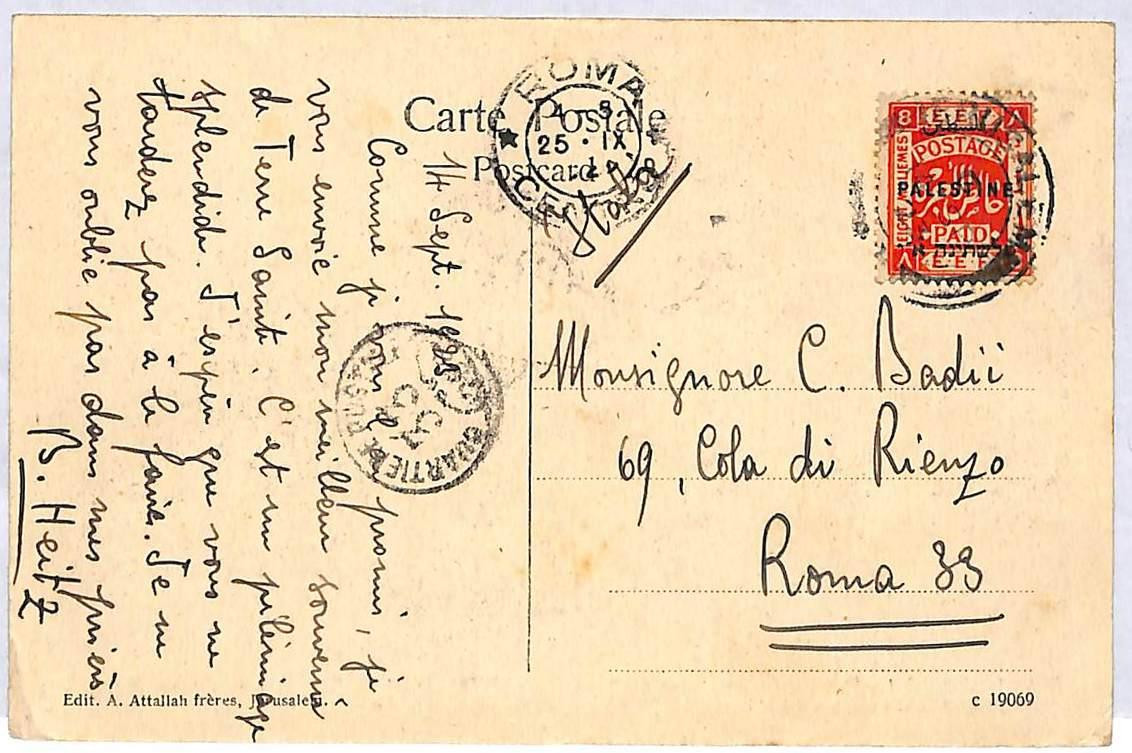 Carte Postale
Postcard
ROMA
25 · IX
8 E.E.F. ٨
POSTAGE
EIGHT MILLIEMES
PALESTINE
PAID
٨ E.E.F.
14 Sept. 1925
Comme je vous l' promis, je
vous envoie mon meilleur souvenir
de Terre Sainte. C'est un pèlerinage
splendide. J'espère que vous ne
tarderez pas à le faire. Je ne
vous oublie pas dans mes prières
B. Heitz
QUARTIERE
Monsignore C. Badii
69, Cola di Rienzo
Roma 33
Edit. A. Attallah frères, Jérusalem.
c 19069